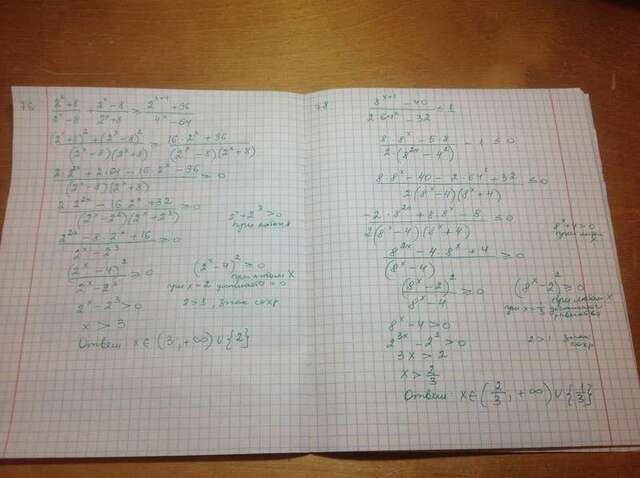 76 (2^x+8)/(2^x-8) + (2^x-8)/(2^x+8) ≥ (2^(x+4)+96)/(4^x-64)
((2^x+8)^2+(2^x-8)^2)/((2^x-8)(2^x+8)) ≥ (16·2^x+96)/((2^x-8)(2^x+8))
(2·2^(2x)+2·64-16·2^x-96)/((2^x-8)(2^x+8)) ≥ 0
(2·2^(2x)-16·2^x+32)/((2^x-2^3)(2^x+2^3)) ≥ 0
2^x+2^3>0
при любом x
(2^(2x)-8·2^x+16)/(2^x-2^3) ≥ 0
(2^x-4)^2/(2^x-2^3) ≥ 0
(2^x-4)^2 ≥ 0
при любом x
при x=2
2^x-2^3>0
2>1, знак сохр
x>3
Ответ x∈(3,+∞)∪{2}
78 (8^(x+1)-40)/(2·64^x-32) ≤ 1
(8·8^x-5·8)/(2(8^(2x)-4^2)) - 1 ≤ 0
(8·8^x-40-2·64^x+32)/(2(8^x-4)(8^x+4)) ≤ 0
(-2·8^(2x)+8·8^x-8)/(2(8^x-4)(8^x+4)) ≤ 0
8^x+4>0
при любом
x
(8^(2x)-4·8^x+4)/(8^x-4) ≥ 0
(8^x-2)^2/(8^x-4) ≥ 0
(8^x-2)^2 ≥ 0
при любом x
при x=1/3
равенство
8^x-4>0
2^(3x)-2^2>0
2>1 знак
сохр
3x>2
x>2/3
Ответ x∈(2/3,+∞)∪{1/3}